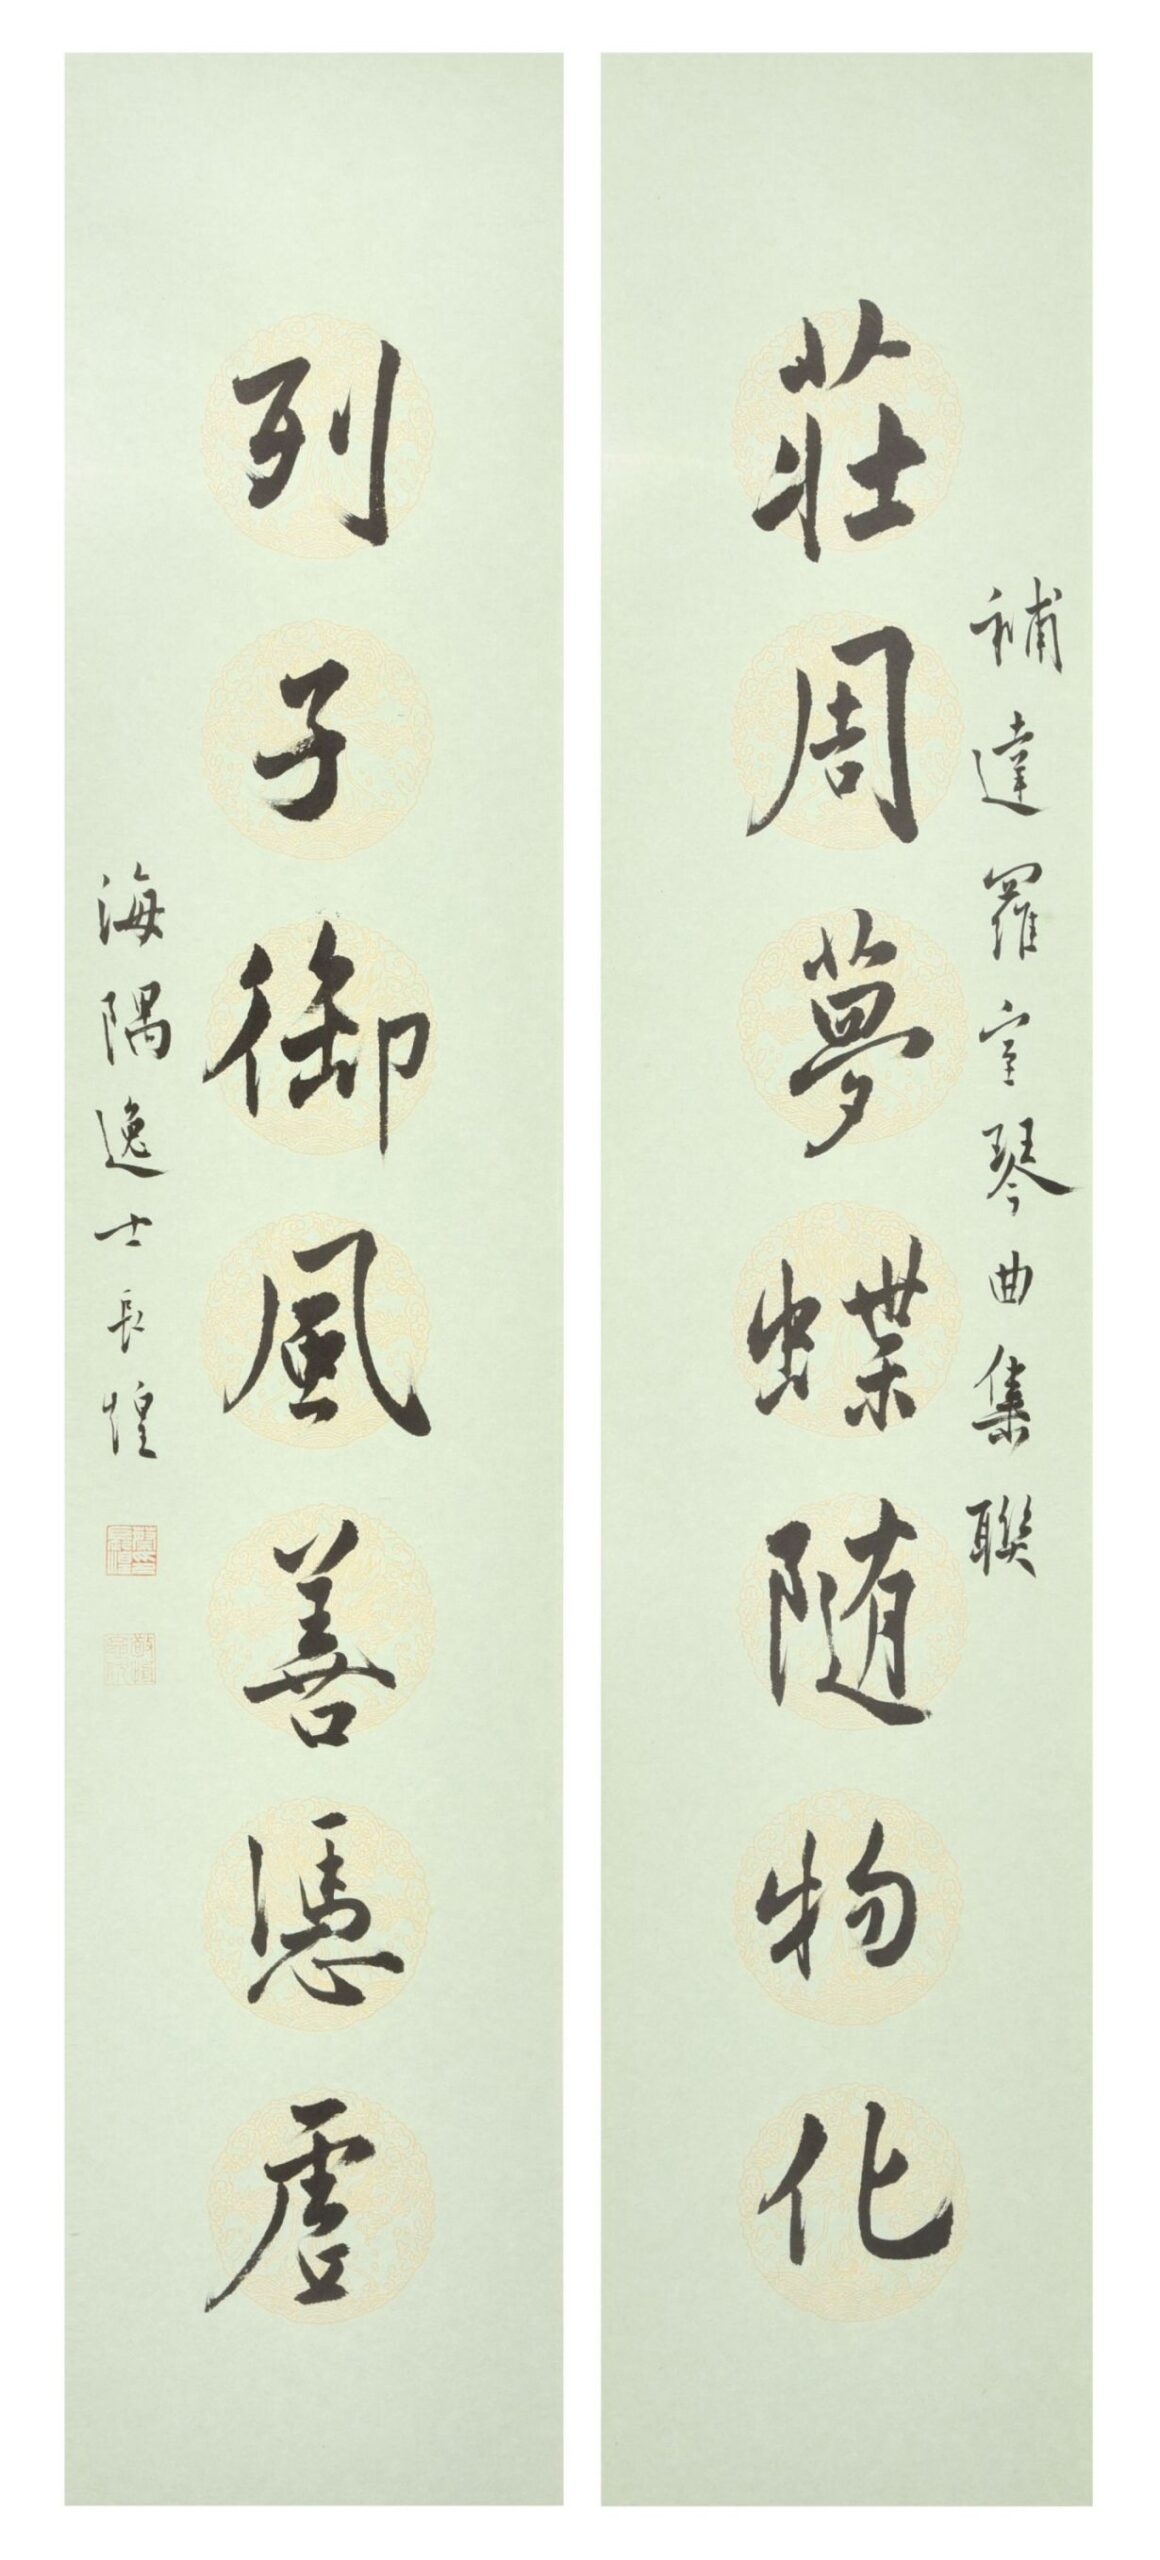 補達羅室琴曲集聯
莊周夢蝶隨物化
列子御風善憑虛
海隅逸士長煌